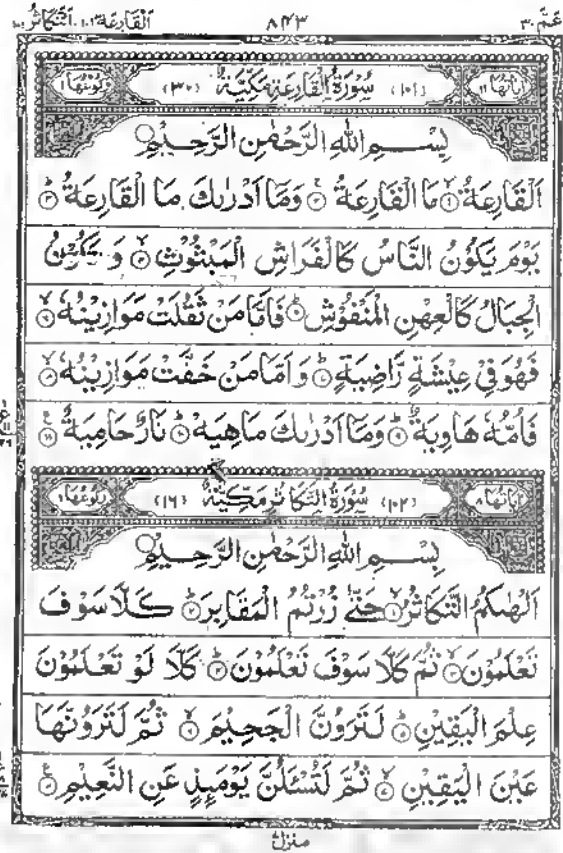 عَمَّ ٣٠ ٨٤٣ اَلْقَارِعَة ١٠١، اَلتَّكَاثُر ١٠٢
اٰيَاتُهَا ١١ (١٠١) سُوْرَةُ الْقَارِعَةِ مَكِّيَّةٌ (٣٠) رُكُوْعُهَا ١
بِسْمِ اللّٰهِ الرَّحْمٰنِ الرَّحِيْمِ
اَلْقَارِعَةُ ۙ۝١ مَا الْقَارِعَةُ ۚ۝٢ وَمَاۤ اَدْرٰىكَ مَا الْقَارِعَةُ ؕ۝٣
يَوْمَ يَكُوْنُ النَّاسُ كَالْفَرَاشِ الْمَبْثُوْثِ ۙ۝٤ وَ تَكُوْنُ
الْجِبَالُ كَالْعِهْنِ الْمَنْفُوْشِ ؕ۝٥ فَاَمَّا مَنْ ثَقُلَتْ مَوَازِيْنُهٗ ۙ۝٦
فَهُوَ فِيْ عِيْشَةٍ رَّاضِيَةٍ ؕ۝٧ وَ اَمَّا مَنْ خَفَّتْ مَوَازِيْنُهٗ ۙ۝٨
فَاُمُّهٗ هَاوِيَةٌ ؕ۝٩ وَمَاۤ اَدْرٰىكَ مَاهِيَهْ ؕ۝١٠ نَارٌ حَامِيَةٌ ۠۝١١
اٰيَاتُهَا ٨ (١٠٢) سُوْرَةُ التَّكَاثُرِ مَكِّيَّةٌ (١٦) رُكُوْعُهَا ١
بِسْمِ اللّٰهِ الرَّحْمٰنِ الرَّحِيْمِ
اَلْهٰىكُمُ التَّكَاثُرُ ۙ۝١ حَتّٰى زُرْتُمُ الْمَقَابِرَ ؕ۝٢ كَلَّا سَوْفَ
تَعْلَمُوْنَ ۙ۝٣ ثُمَّ كَلَّا سَوْفَ تَعْلَمُوْنَ ؕ۝٤ كَلَّا لَوْ تَعْلَمُوْنَ
عِلْمَ الْيَقِيْنِ ؕ۝٥ لَتَرَوُنَّ الْجَحِيْمَ ۙ۝٦ ثُمَّ لَتَرَوُنَّهَا
عَيْنَ الْيَقِيْنِ ۙ۝٧ ثُمَّ لَتُسْـَٔلُنَّ يَوْمَىِٕذٍ عَنِ النَّعِيْمِ ۠۝٨
منزل